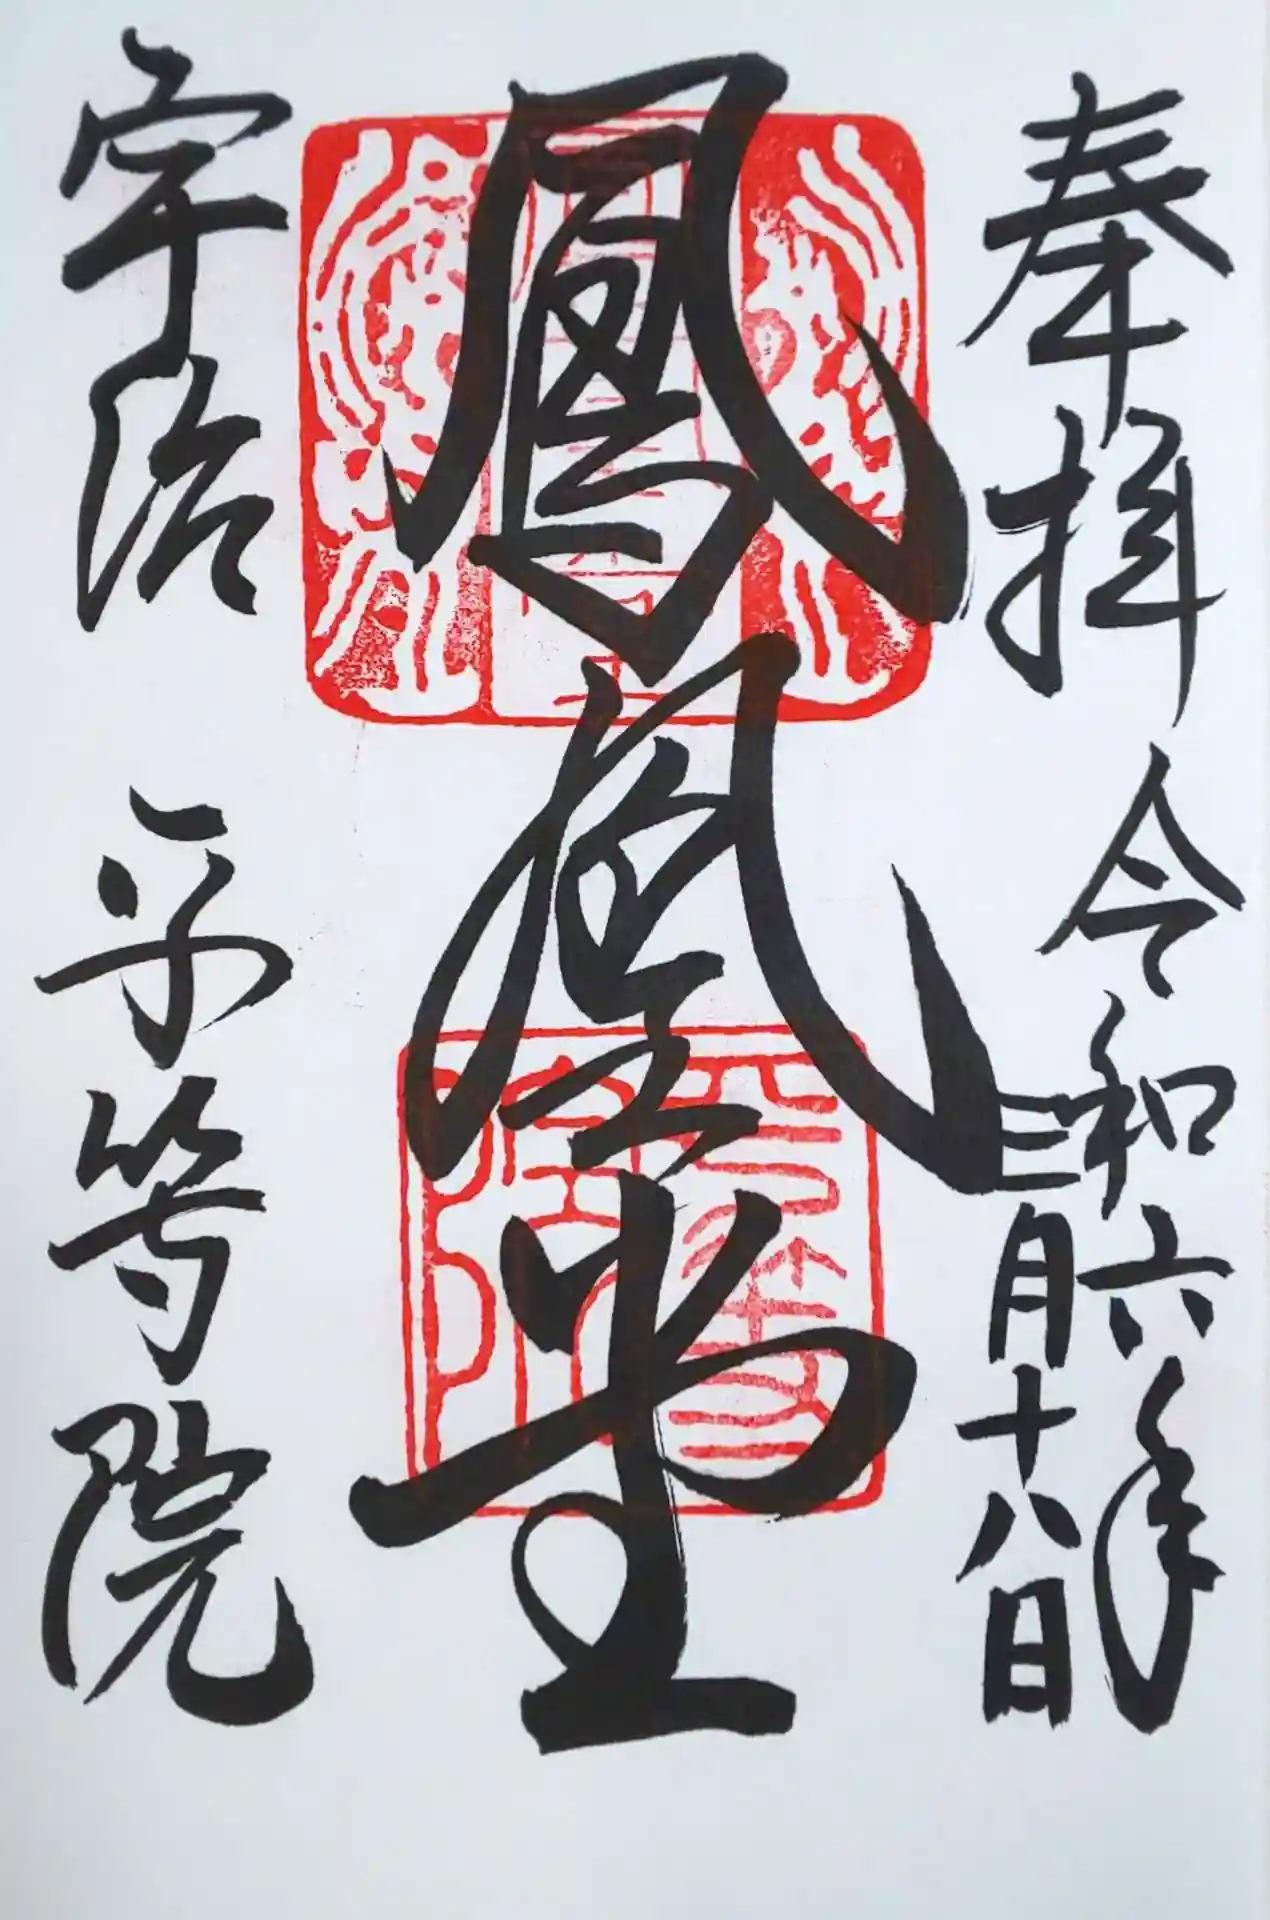 奉拝 令和六年
三月十八日
鳳凰堂
宇治 平等院